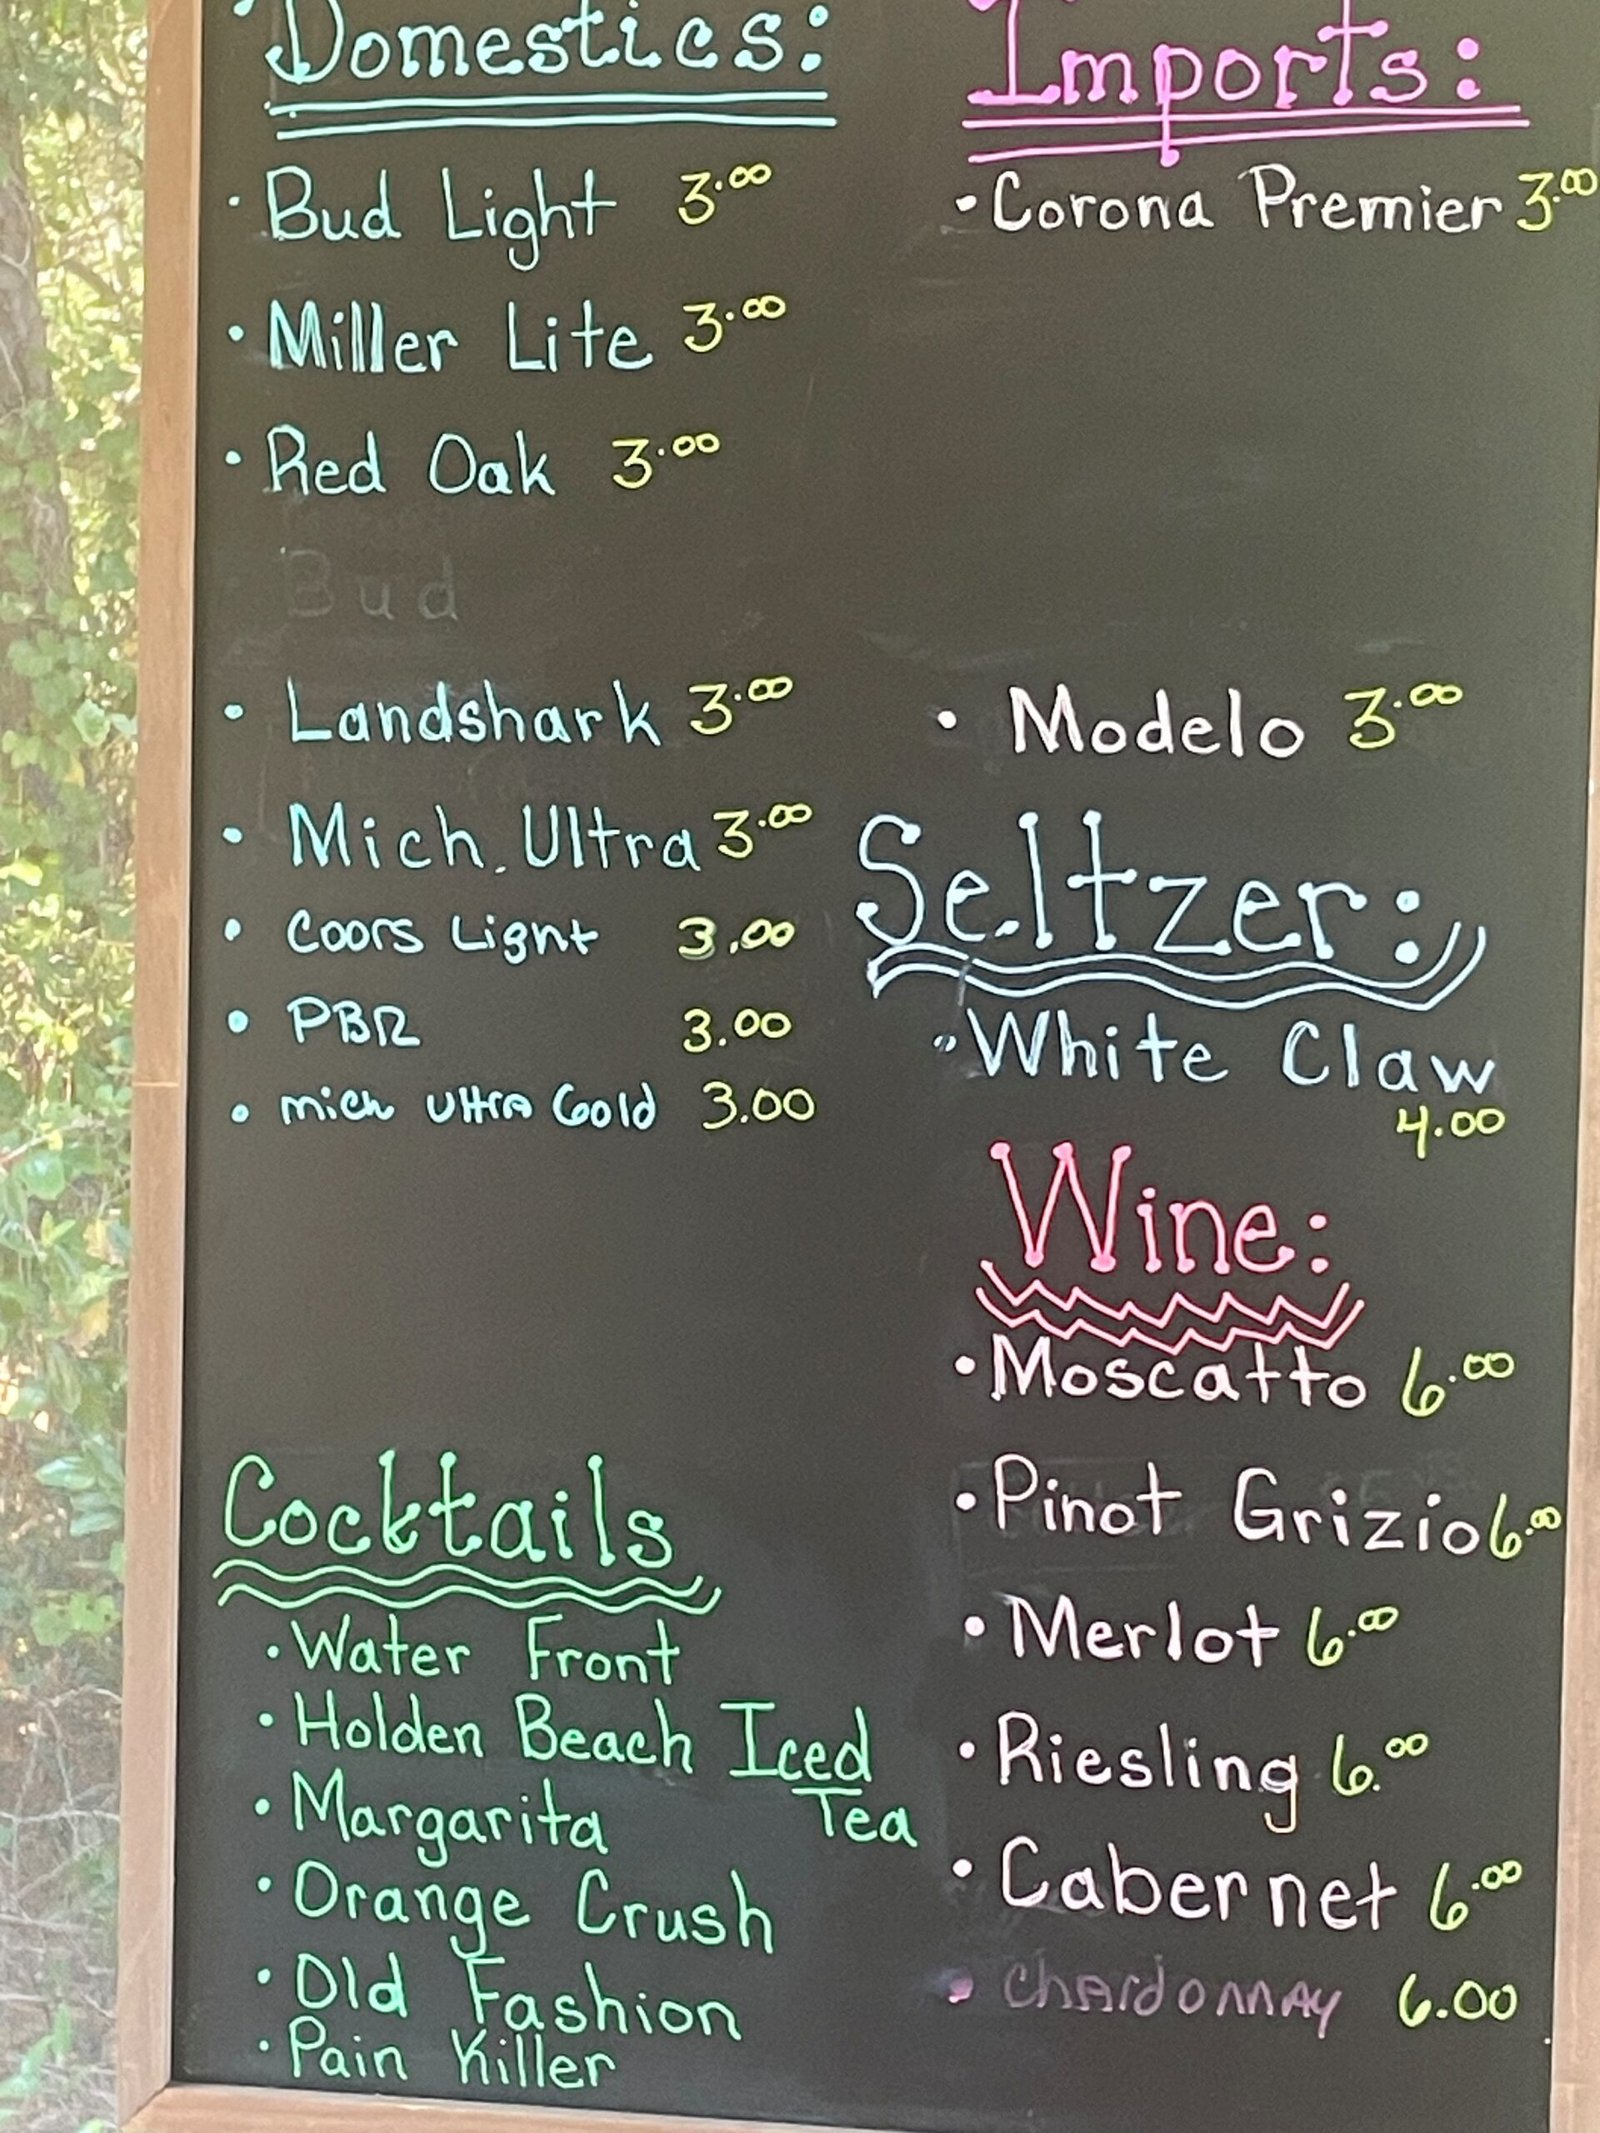 Domestics:
· Bud Light 3.00
· Miller Lite 3.00
· Red Oak 3.00
Bud
· Landshark 3.00
· Mich. Ultra 3.00
· Coors Light 3.00
· PBR 3.00
· Mich Ultra Gold 3.00
Cocktails
· Water Front
· Holden Beach Iced
Tea
· Margarita
· Orange Crush
· Old Fashion
· Pain Killer
Imports:
· Corona Premier 3.00
· Modelo 3.00
Seltzer:
· White Claw
4.00
Wine:
· Moscatto 6.00
· Pinot Grizio 6.00
· Merlot 6.00
· Riesling 6.00
· Cabernet 6.00
· Chardonnay 6.00